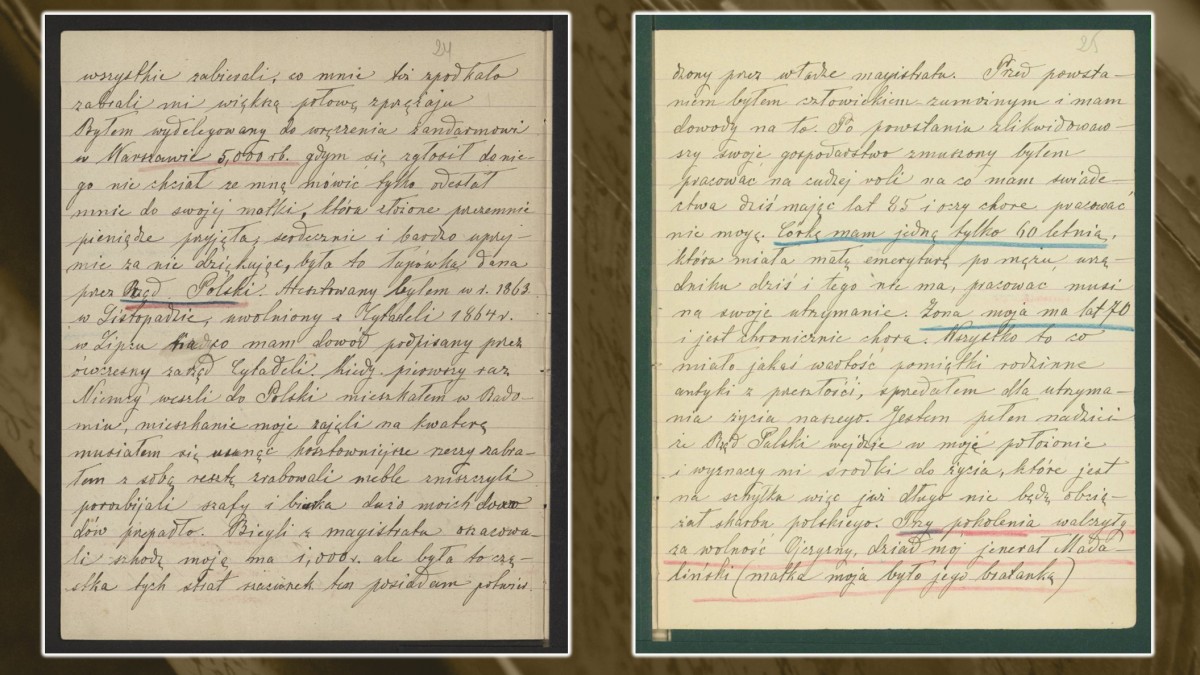 24
wszystkie zabierali, co mnie też spodkało
zabrali mi większą połowę sprzężaju
Byłem wydelegowany do wręczenia żandarmowi
w Warszawie 5,000 rb. gdym się zgłosił do nie-
go nie chciał ze mną mówić tylko odesłał
mnie do swojej matki, która złożone przezemnie
pieniądze przyjęła, serdecznie i bardzo uprzej-
mie za nie dziękując, była to łapówka dana
przez Rząd Polski. Aresztowany byłem w r. 1863
w Listopadzie, uwolniony z Cytadeli 1864 r.
w Lipcu na to mam dowód podpisany przez
owczesny zarząd Cytadeli. Kiedy pierwszy raz
Niemcy weszli do Polski mieszkałem w Rado-
miu, mieszkanie moje zajęli na kwaterę
musiałem się usunąć kosztowniejsze rzeczy zabra-
łem z sobą resztę zrabowali meble zniszczyli
porozbijali szafy i biurka dużo moich dowo
dów przepadło. Biegli z magistratu oszacowa-
li szkodę moją na 1,000 r. ale była to czą-
stka tych strat szacunek ten posiadam potwier-
25
dzony przez władze magistratu. Przed powsta-
niem byłem człowiekiem zamożnym i mam
dowody na to. Po powstaniu zlikwidowaw-
szy swoje gospodarstwo zmuszony byłem
pracować na cudzej roli na co mam świade-
ctwa dziś mając lat 85 i oczy chore pracować
nie mogę. Córkę mam jedną tylko 60 letnią,
która miała małą emeryturę po mężu urzę-
dniku dziś i tego nie ma, pracować musi
na swoje utrzymanie. Żona moja ma lat 70
i jest chronicznie chora. Wszystko to co
miało jakąś wartość pomiątki rodzinne
antyki z przeszłości, sprzedałem dla utrzyma-
nia życia naszego. Jestem pełen nadzieci
że Rząd Polski wejdzie w moje położenie
i wyznaczy mi środki do życia, które jest
na schyłku więc już długo nie będę obcią-
żał skarbu polskiego. Trzy pokolenia walczyły
za wolność Ojczyzny, dziad mój jenerał Mada-
liński (matka moja była jego bratanką)